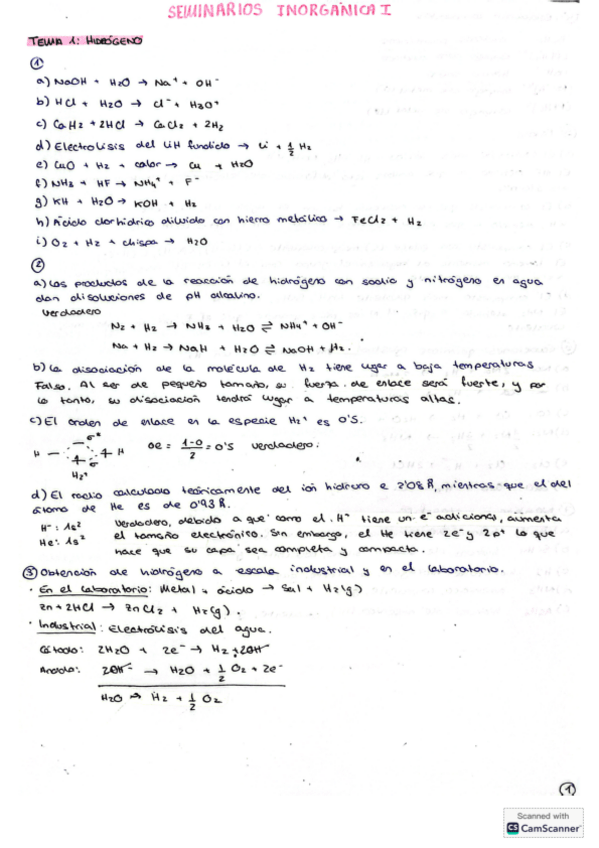 SEMINARIOS INORGÁNICA I
TEMA 1: HIDRÓGENO
①
a) NaOH + H2O → Na+ + OH-
b) HCl + H2O → Cl- + H3O+
c) CaH2 + 2HCl → CaCl2 + 2H2
d) Electrolisis del LiH fundido → Li + 1/2 H2
e) CuO + H2 + calor → Cu + H2O
f) NH3 + HF → NH4+ + F-
g) KH + H2O → KOH + H2
h) Ácido clorhídrico diluido con hierro metálico → FeCl2 + H2
i) O2 + H2 + chispa → H2O
②
a) Los productos de la reacción de hidrógeno con sodio y nitrógeno en agua
dan disoluciones de pH alcalino.
Verdadero
N2 + H2 → NH3 + H2O ⇌ NH4+ + OH-
Na + H2 → NaH + H2O ⇌ NaOH + H2.
b) La disociación de la molécula de H2 tiene lugar a baja temperaturas
Falso. Al ser de pequeño tamaño, su fuerza de enlace será fuerte, y por
lo tanto, su disociación tendrá lugar a temperaturas altas.
c) El orden de enlace en la especie H2+ es 0'5.
σ*
H H OE = 1-0/2 = 0'5 Verdadero.
σ
H2+
d) El radio calculado teóricamente del ión hidruro e 2'08 Å, mientras que el del
átomo de He es de 0'93 Å.
H-: 1s2 Verdadero, debido a que como el H- tiene un e- adicional, aumenta
He: 1s2 el tamaño electrónico. Sin embargo, el He tiene 2e- y 2p+ lo que
hace que su capa sea completa y compacta.
③ Obtención de hidrógeno a escala industrial y en el laboratorio.
· En el laboratorio: Metal + ácido → Sal + H2(g)
Zn + 2HCl → ZnCl2 + H2(g).
· Industrial: Electrólisis del agua.
Cátodo: 2H2O + 2e- → H2 + 2OH-
Ánodo: 2OH- → H2O + 1/2 O2 + 2e-
H2O → H2 + 1/2 O2
①
Scanned with
CS CamScanner